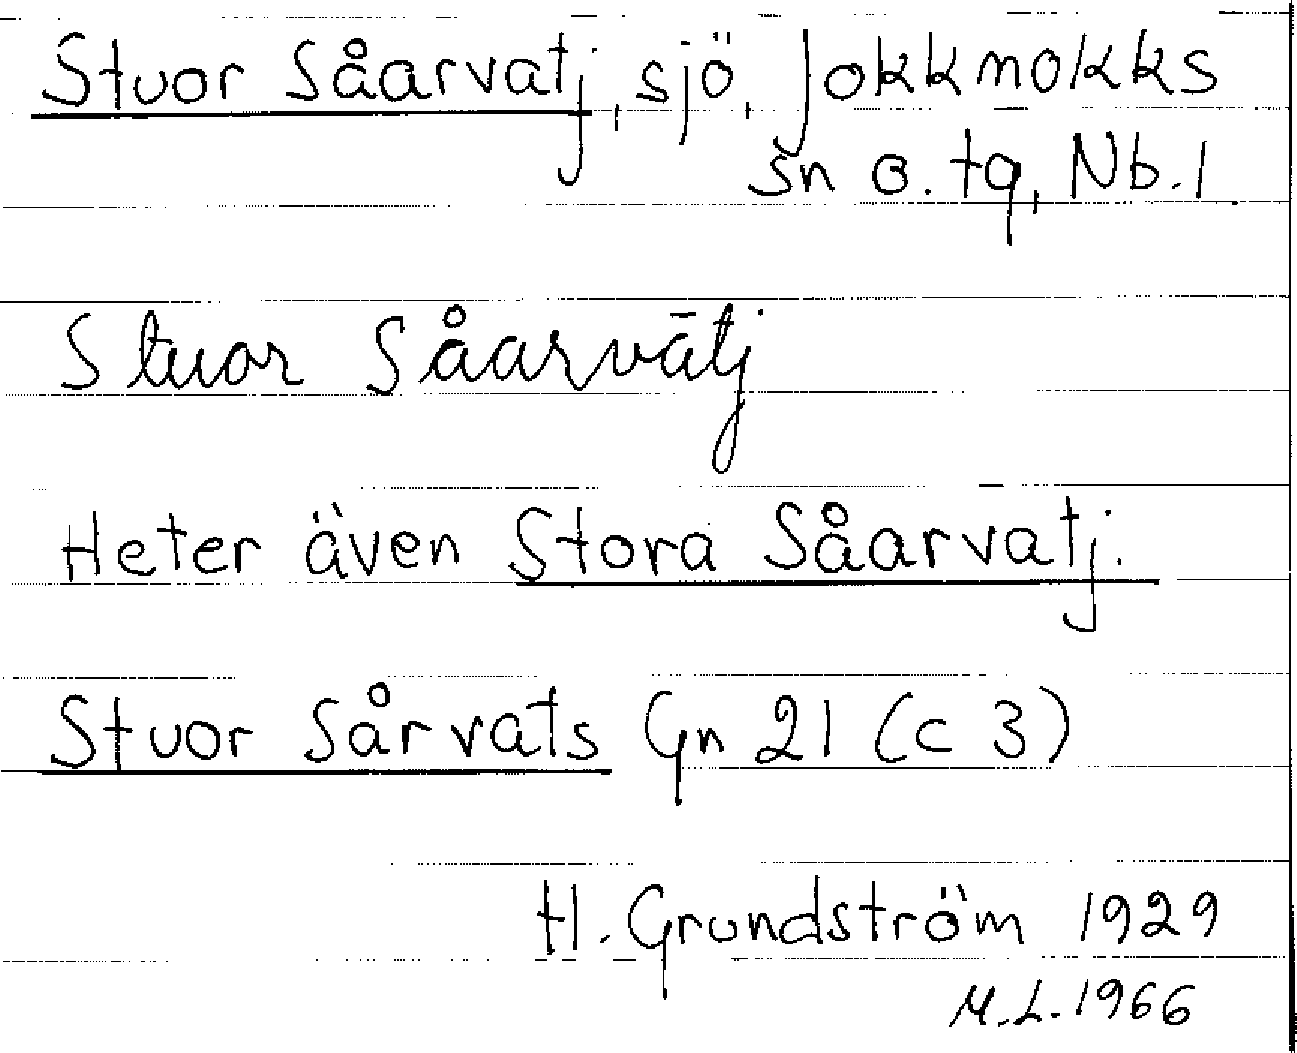 Stuor Såarvatj, sjö, Jokkmokks
sn o. tg, Nb. l
Stuor Såarvātj
Heter även Stora Såarvatj.
Stuor Sårvats Gn 21 (c 3)
H. Grundström 1929
M.L. 1966